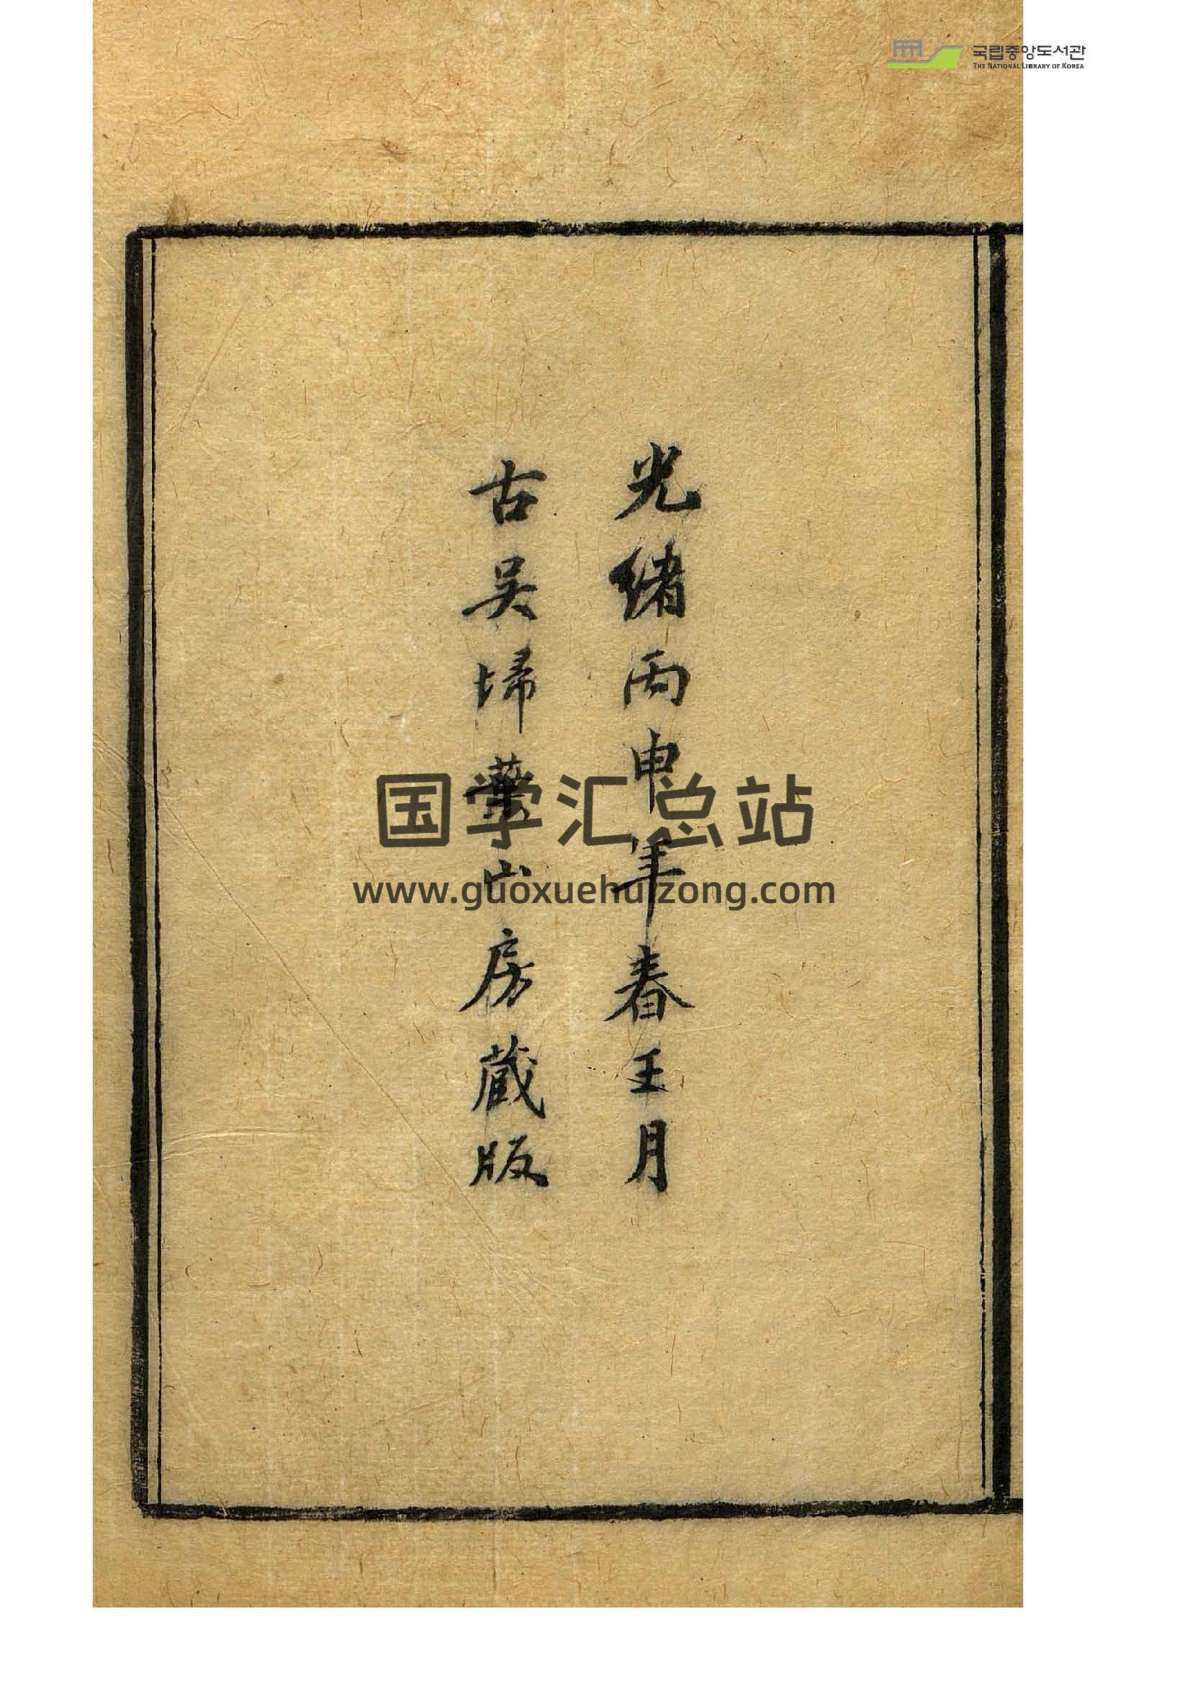 국립중앙도서관
THE NATIONAL LIBRARY OF KOREA
光緒丙申年春王月
古吴埽葉山房藏版
国学汇总站
www.guoxuehuizong.com